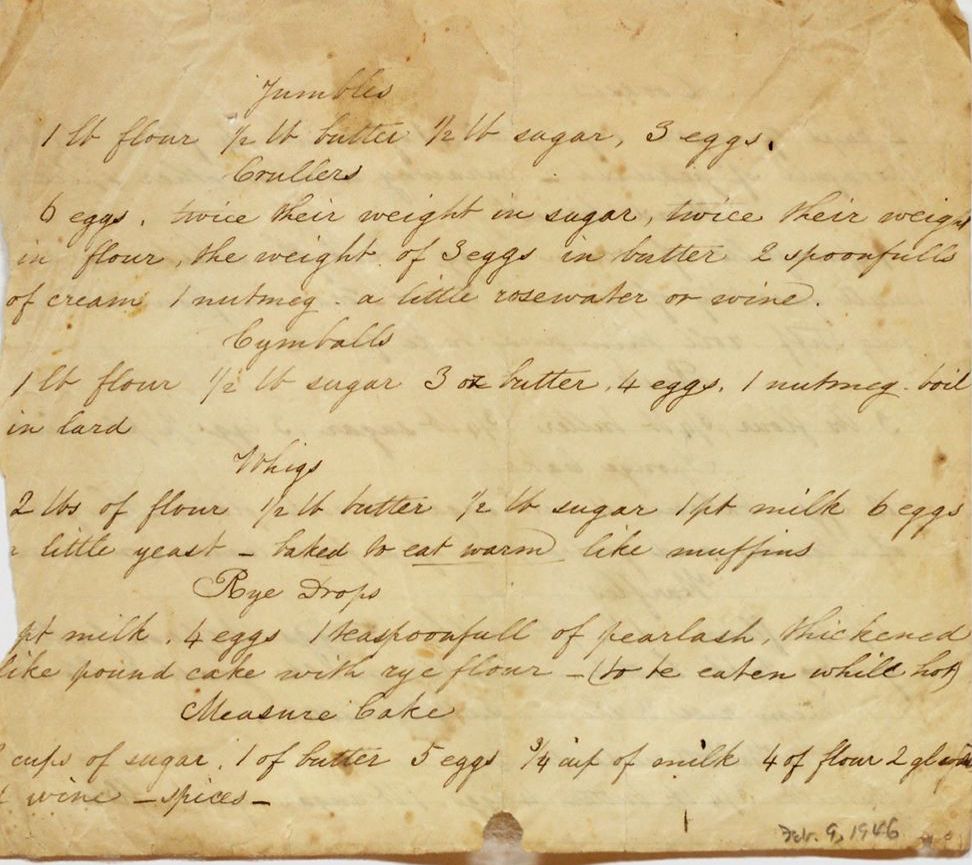 Jumbles
1 lb flour 1/2 lb butter 1/2 lb sugar, 3 eggs.
Crullers
6 eggs. twice their weight in sugar, twice their weight
in flour, the weight of 3 eggs in butter 2 spoonfulls
of cream 1 nutmeg. a little rosewater or wine.
Cymballs
1 lb flour 1/2 lb sugar 3 oz butter, 4 eggs. 1 nutmeg. boil
in lard
Whigs
2 lbs of flour 1/2 lb butter 1/2 lb sugar 1 pt milk 6 eggs
little yeast – baked to eat warm like muffins
Rye Drops
pt milk. 4 eggs 1 teaspoonfull of pearlash, thickened
like pound cake with rye flour – (to be eaten while hot)
Measure Cake
cups of sugar. 1 of butter 5 eggs 3/4 cup of milk 4 of flour 2
wine – spices –
Feb. 9, 1946